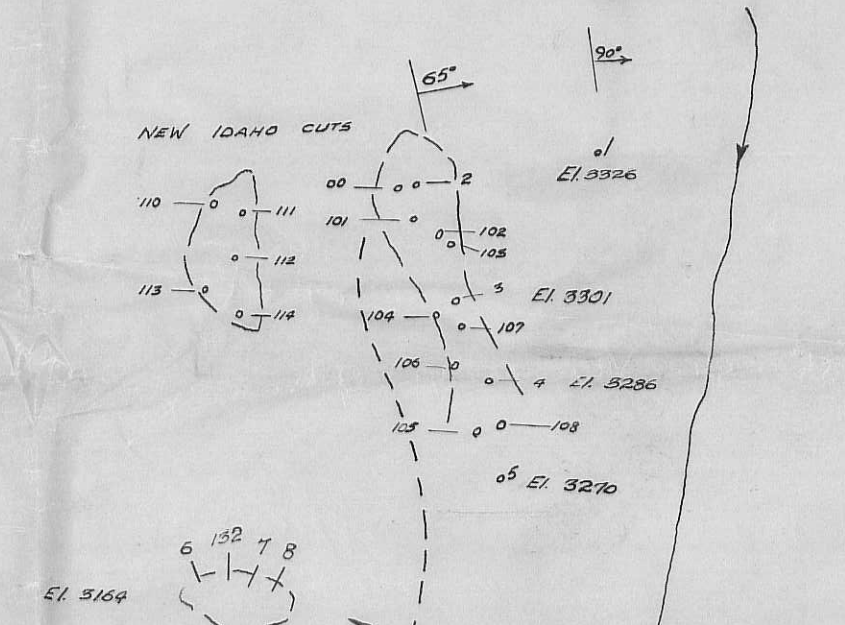 65°
90°
NEW IDAHO CUTS
1
El. 3326
00
2
110
111
101
102
103
112
113
3
El. 3301
114
104
107
106
4
El. 3286
105
108
5
El. 3270
6
132
7
8
El. 3164